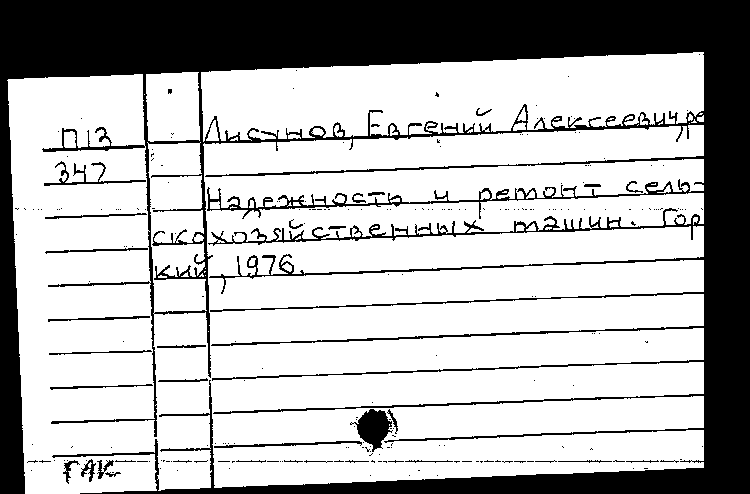 П13 Лисунов, Евгений Алексеевич, ре
347
Надежность и ремонт сель-
скохозяйственных машин. Горь
кий, 1976.
ГАК